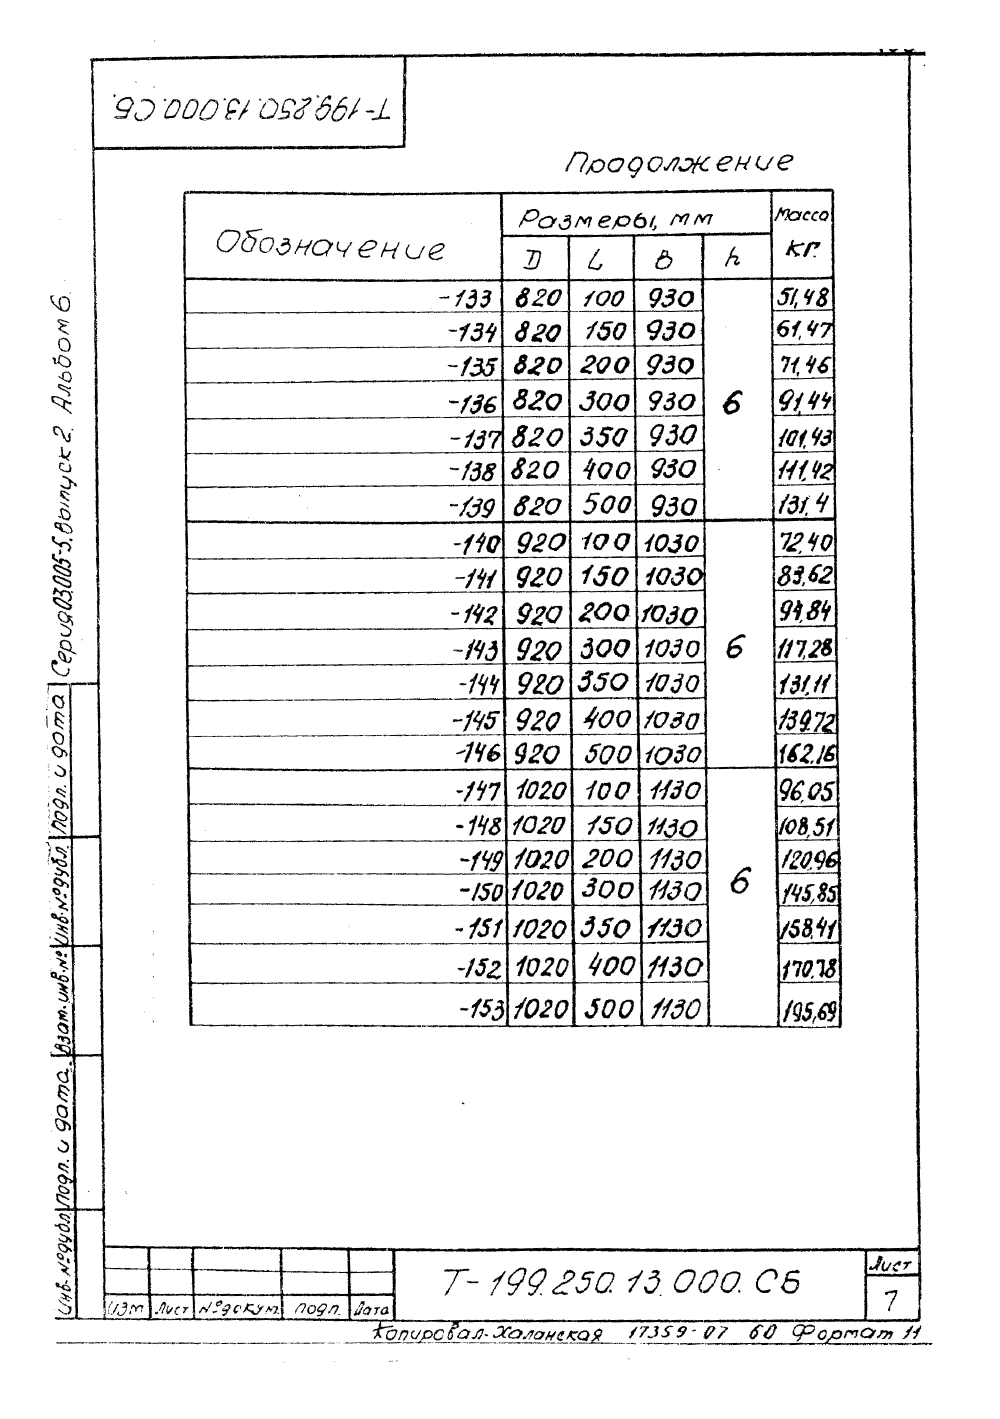 Т-199.250.13.000.СБ.
Продолжение
Обозначение Размеры, мм Масса кг.
D L B h
-133 820 100 930 6 51,48
-134 820 150 930 61,47
-135 820 200 930 71,46
-136 820 300 930 91,44
-137 820 350 930 101,43
-138 820 400 930 111,42
-139 820 500 930 131,4
-140 920 100 1030 6 72,40
-141 920 150 1030 83,62
-142 920 200 1030 94,84
-143 920 300 1030 117,28
-144 920 350 1030 131,11
-145 920 400 1030 139,72
-146 920 500 1030 162,16
-147 1020 100 1130 6 96,05
-148 1020 150 1130 108,51
-149 1020 200 1130 120,96
-150 1020 300 1130 145,85
-151 1020 350 1130 158,41
-152 1020 400 1130 170,78
-153 1020 500 1130 195,69
Серия 03.005-5. Выпуск 2. Альбом 6.
Инв.№дубл. Подп. и дата. Взам.инв.№ Инв.№дубл. Подп. и дата
Изм Лист №докум. Подп. Дата
Т-199.250.13.000.СБ
Лист
7
Копировал-Халанская 17359-07 60 Формат 11